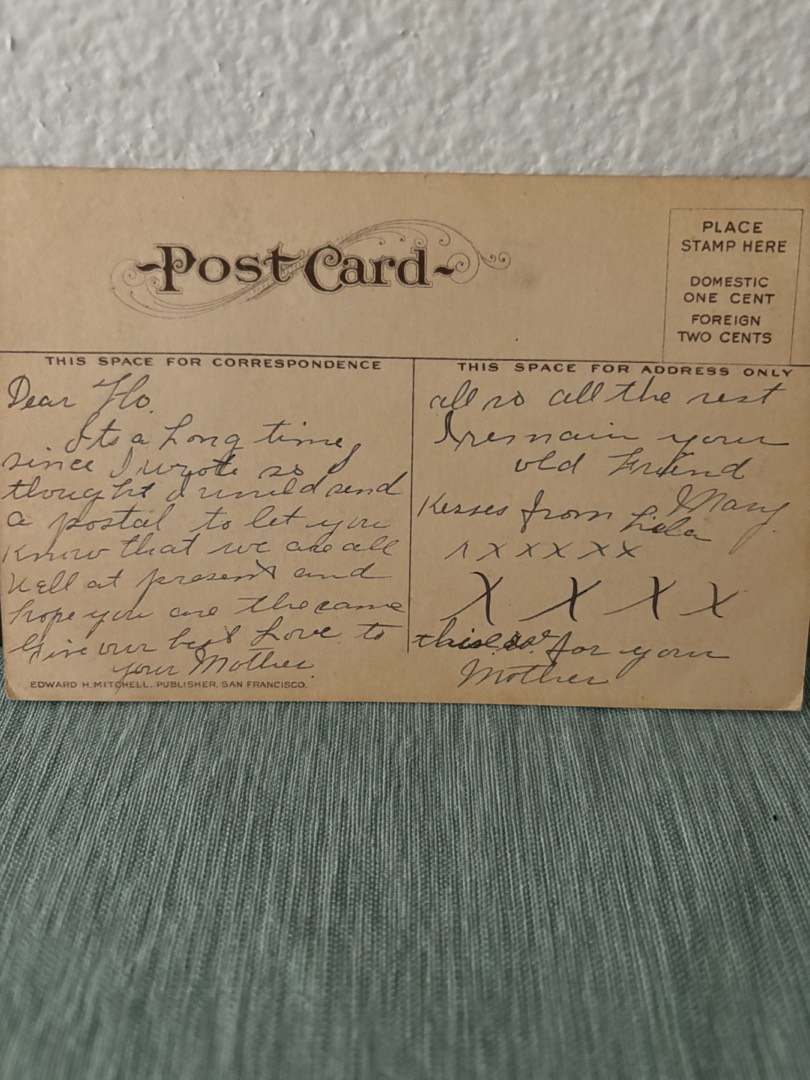 Post Card
PLACE
STAMP HERE
DOMESTIC
ONE CENT
FOREIGN
TWO CENTS
THIS SPACE FOR CORRESPONDENCE
Dear Flo.
Its a Long time
since I wrote so I
thought I would send
a postal to let you
know that we are all
well at present and
hope you are the same
Give our best Love to
your Mother.
EDWARD H. MITCHELL, PUBLISHER, SAN FRANCISCO.
THIS SPACE FOR ADDRESS ONLY
all so all the rest
I remain your
old Friend
Mary
Kisses from Lila
X X X X X X
X X X X
for your
Mother